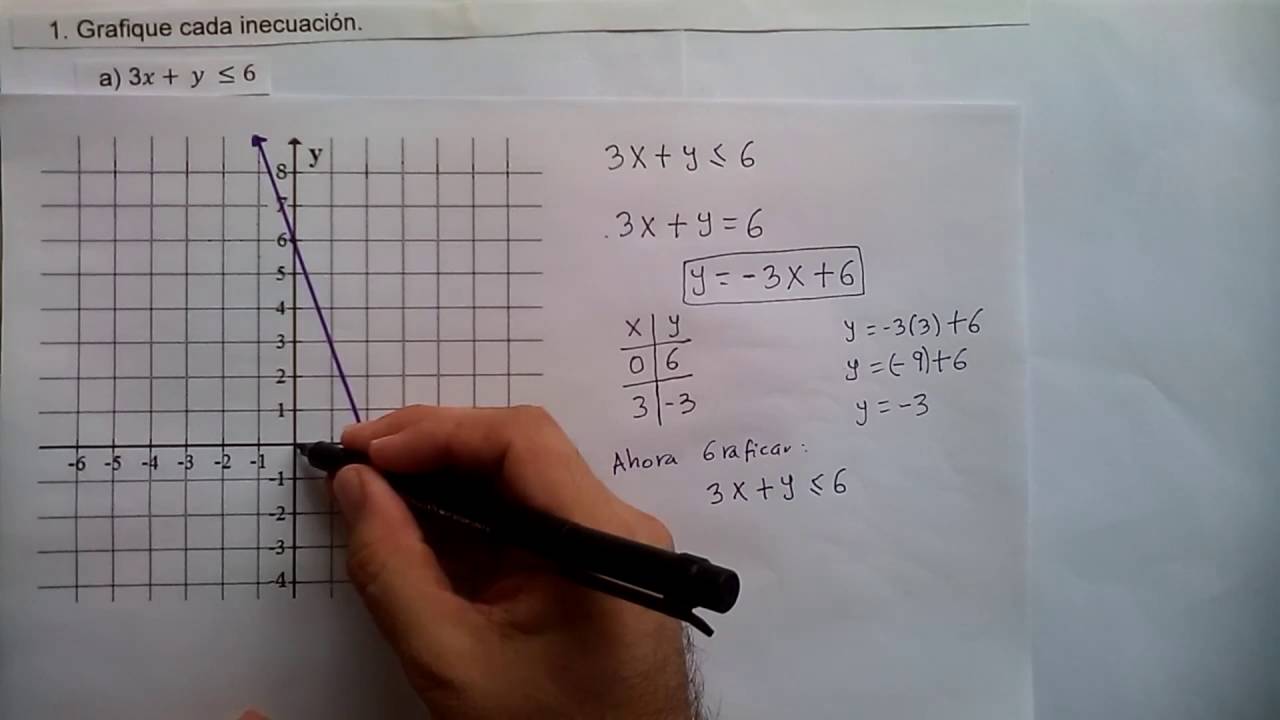 1. Grafique cada inecuación.
a) 3x + y ≤ 6
y
8
7
6
5
4
3
2
1
-6 -5 -4 -3 -2 -1
-1
-2
-3
-4
3x + y ≤ 6
3x + y = 6
y = -3x + 6
x | y
0 | 6
3 | -3
y = -3(3) + 6
y = (-9) + 6
y = -3
Ahora Graficar:
3x + y ≤ 6